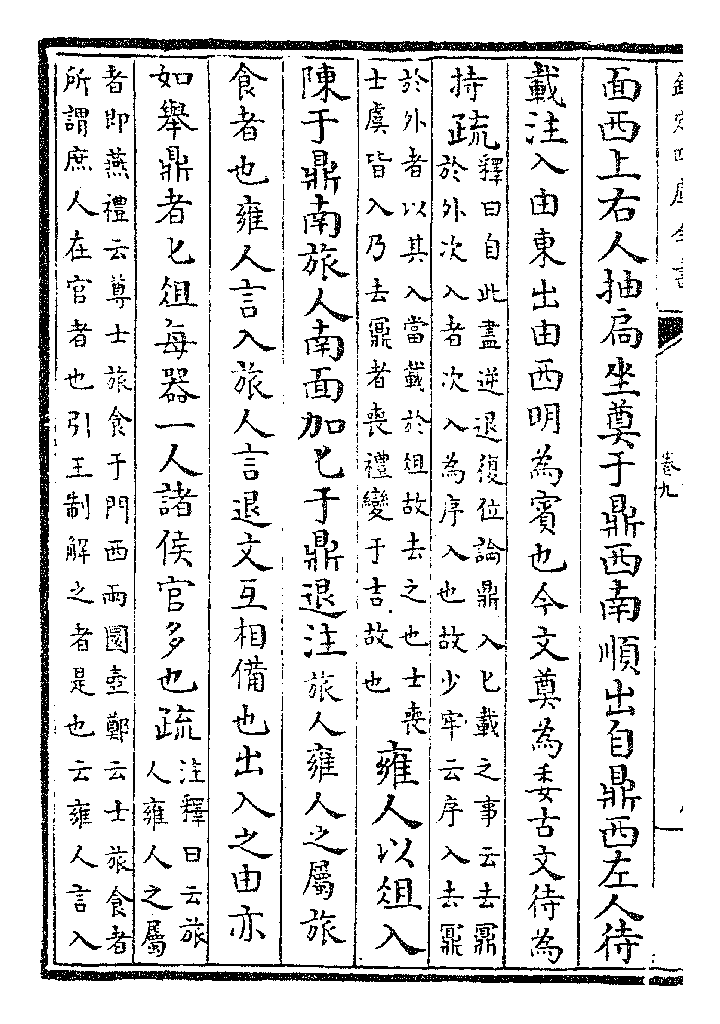 欽定四庫全書
卷九
面西上右人抽扃坐奠于鼎西南順出自鼎西左人待
載注入由東出由西明為賓也今文奠為委古文待為
持疏釋曰自此盡逆退復位論鼎入匕載之事云去鼏
於外次入者次入為序入也故少牢云序入去鼏
於外者以其入當載於俎故去之也士喪
士虞皆入乃去鼏者喪禮變于吉故也
雍人以俎入
陳于鼎南旅人南面加匕于鼎退注旅人雍人之屬旅
食者也雍人言入旅人言退文互相備也出入之由亦
如舉鼎者匕俎每器一人諸侯官多也疏注釋曰云旅
人雍人之屬
者即燕禮云尊士旅食于門西兩圜壺鄭云士旅食者
所謂庶人在官者也引王制解之者是也云雍人言入